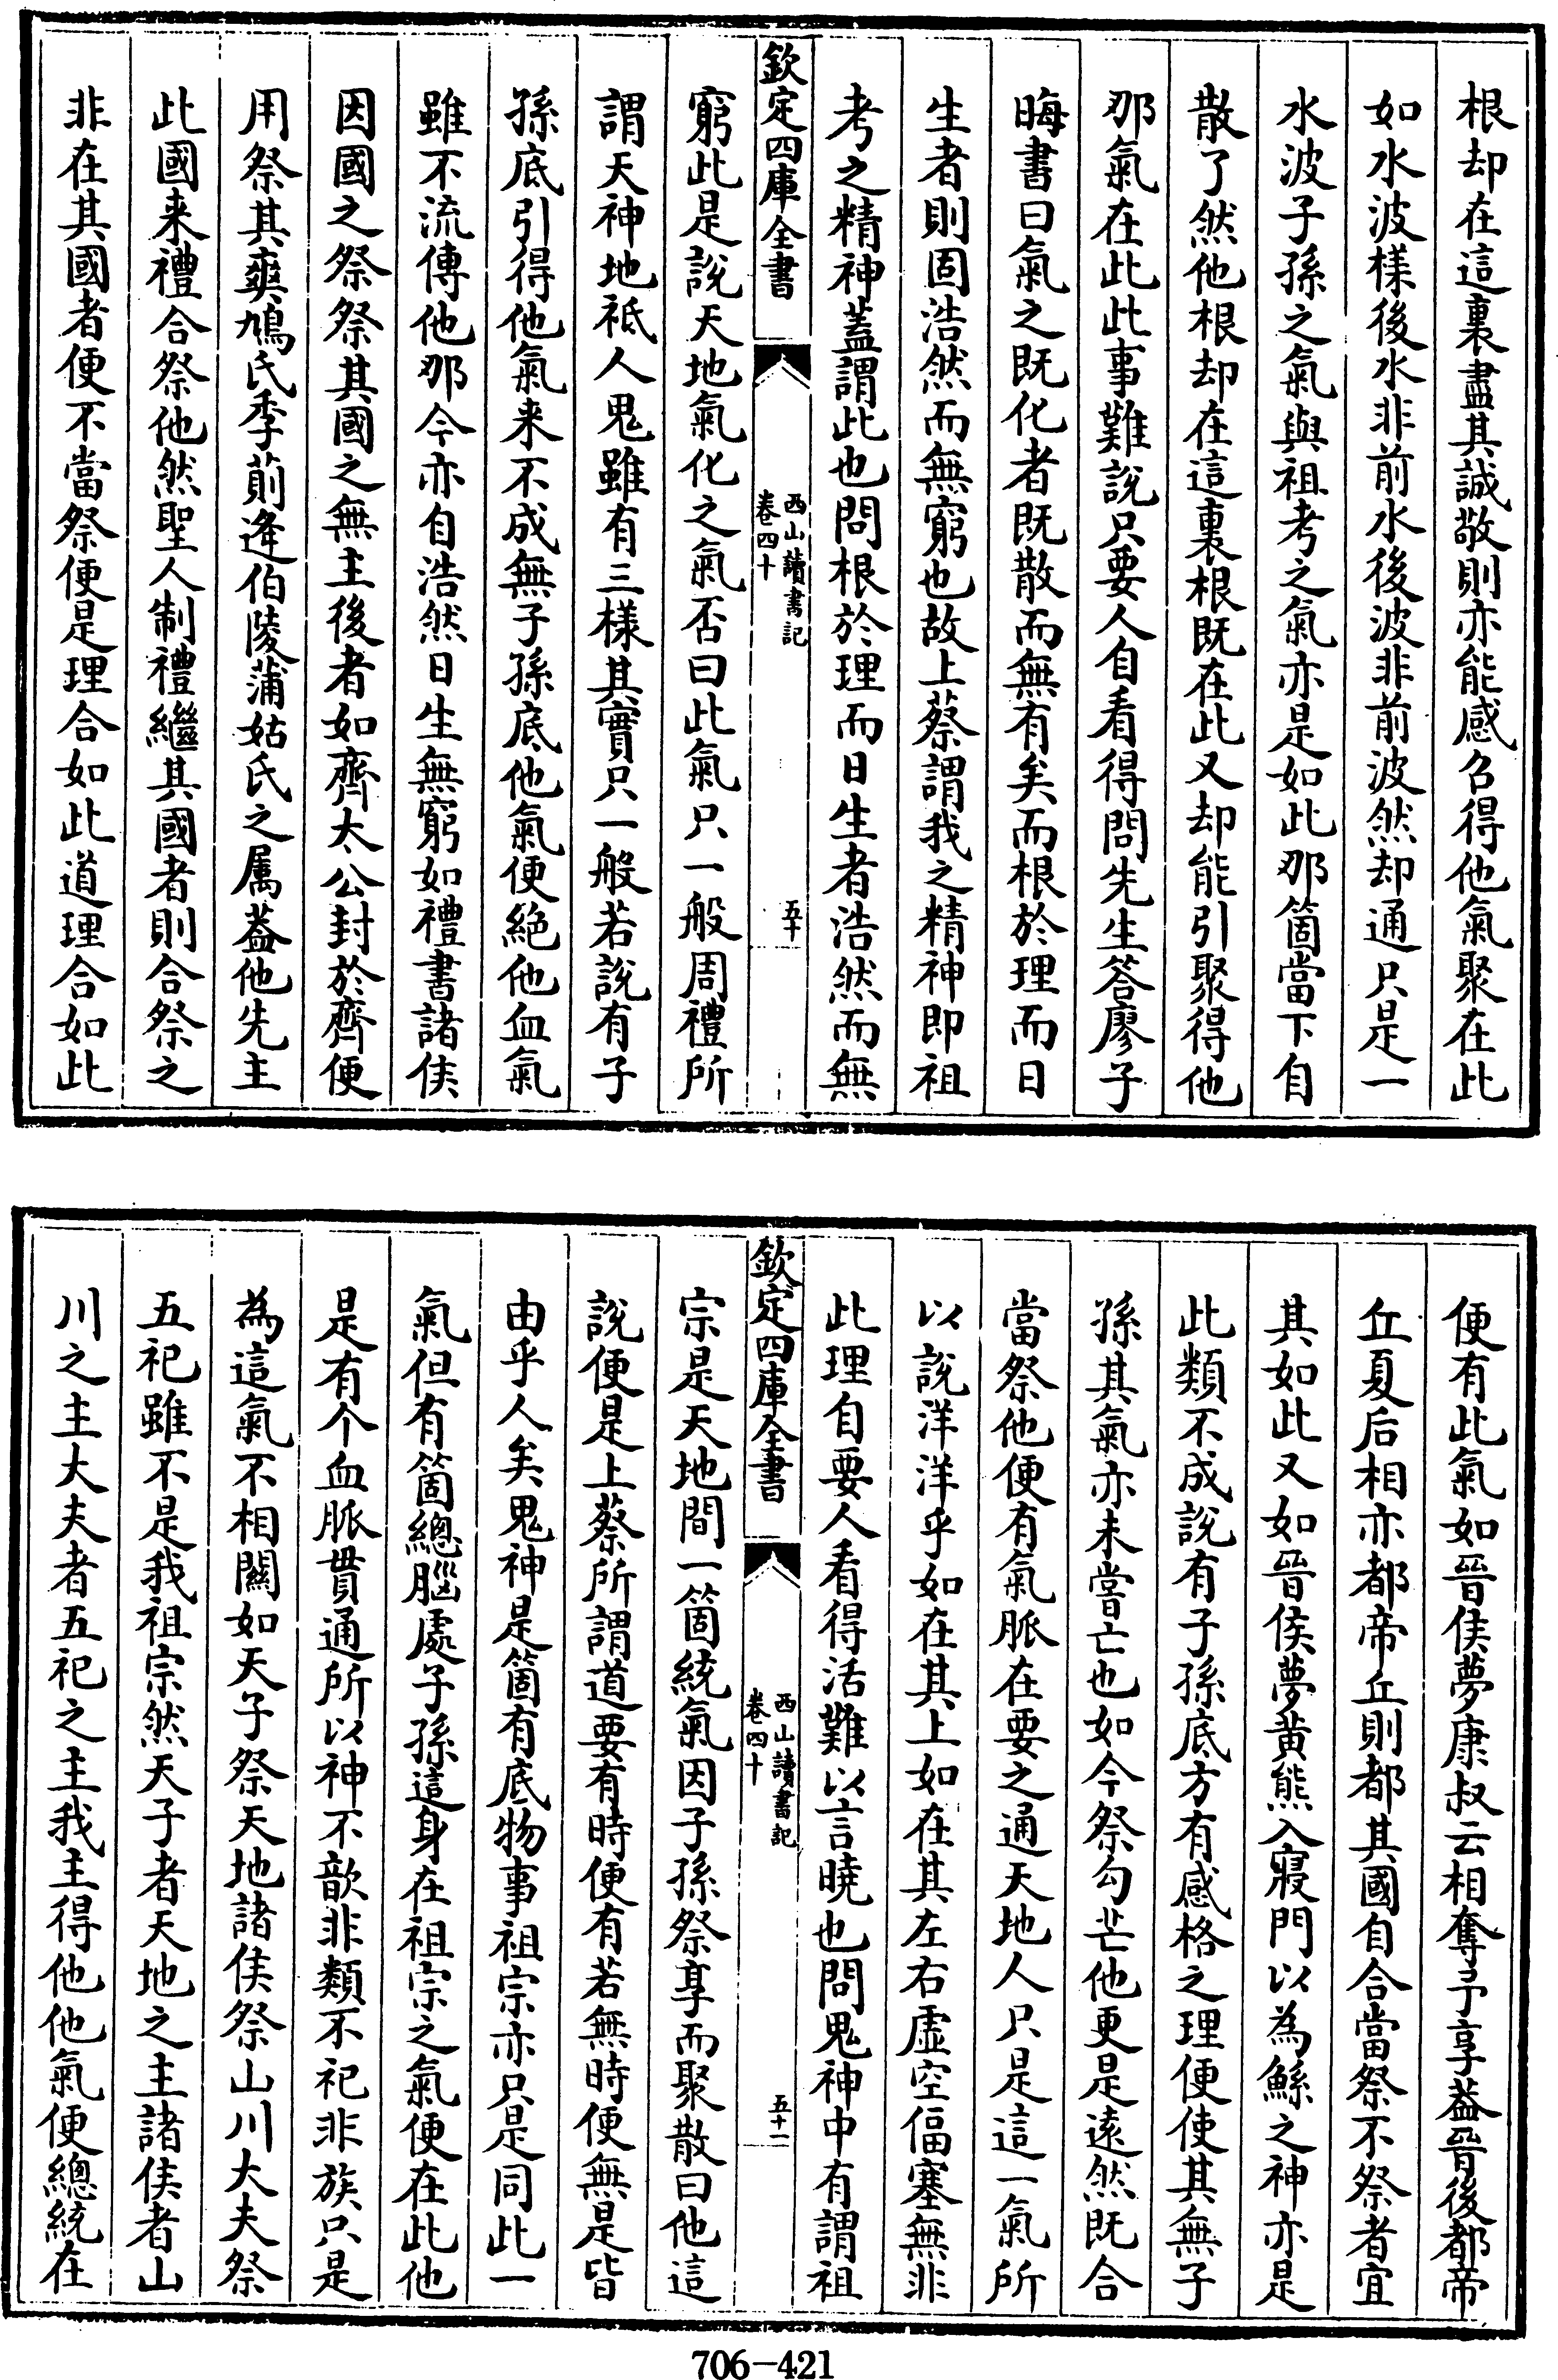 根却在這裏盡其誠敬則亦能感召得他氣聚在此
如水波様後水非前水後波非前波然却通只是一
水波子孫之氣與祖考之氣亦是如此那箇當下自
散了然他根却在這裏根既在此又却能引聚得他
那氣在此此事難說只要人自看得問先生答廖子
晦書曰氣之既化者既散而無有矣而根於理而日
生者則固浩然而無窮也故上蔡謂我之精神即祖
考之精神蓋謂此也問根於理而日生者浩然而無
欽定四庫全書
西山讀書記
卷四十
五十
窮此是說天地氣化之氣否曰此氣只一般周禮所
謂天神地祇人鬼雖有三様其實只一般若說有子
孫底引得他氣来不成無子孫底他氣便絶他血氣
雖不流傳他那今亦自浩然日生無窮如禮書諸侯
因國之祭祭其國之無主後者如齊太公封於齊便
用祭其爽鳩氏季萴逄伯陵蒲姑氏之属葢他先主
此國来禮合祭他然聖人制禮繼其國者則合祭之
非在其國者便不當祭便是理合如此道理合如此
便有此氣如晉侯夢康叔云相奪予享葢晉後都帝
丘夏后相亦都帝丘則都其國自合當祭不祭者宜
其如此又如晉侯夢黄熊入寢門以為鯀之神亦是
此類不成説有子孫底方有感格之理便使其無子
孫其氣亦未嘗亡也如今祭勾芒他更是遠然既合
當祭他便有氣脈在要之通天地人只是這一氣所
以説洋洋乎如在其上如在其左右虚空偪塞無非
此理自要人看得活難以言曉也問鬼神中有謂祖
欽定四庫全書
西山讀書記
卷四十
五十一
宗是天地間一箇統氣因子孫祭享而聚散曰他這
說便是上蔡所謂道要有時便有若無時便無是皆
由乎人矣鬼神是箇有底物事祖宗亦只是同此一
氣但有箇總腦處子孫這身在祖宗之氣便在此他
是有个血脈貫通所以神不歆非類不祀非族只是
為這氣不相關如天子祭天地諸侯祭山川大夫祭
五祀雖不是我祖宗然天子者天地之主諸侯者山
川之主大夫者五祀之主我主得他他氣便總統在
706-421